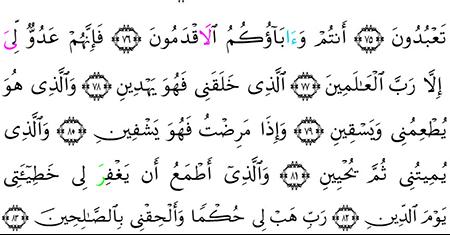 تَعْبُدُونَ ﴿٧٥﴾ أَنتُمْ وَءَابَآؤُكُمُ ٱلْأَقْدَمُونَ ﴿٧٦﴾ فَإِنَّهُمْ عَدُوٌّ لِّىٓ
إِلَّا رَبَّ ٱلْعَٰلَمِينَ ﴿٧٧﴾ ٱلَّذِى خَلَقَنِى فَهُوَ يَهْدِينِ ﴿٧٨﴾ وَٱلَّذِى هُوَ
يُطْعِمُنِى وَيَسْقِينِ ﴿٧٩﴾ وَإِذَا مَرِضْتُ فَهُوَ يَشْفِينِ ﴿٨٠﴾ وَٱلَّذِى
يُمِيتُنِى ثُمَّ يُحْيِينِ ﴿٨١﴾ وَٱلَّذِىٓ أَطْمَعُ أَن يَغْفِرَ لِى خَطِيٓـَٔتِى
يَوْمَ ٱلدِّينِ ﴿٨٢﴾ رَبِّ هَبْ لِى حُكْمًا وَأَلْحِقْنِى بِٱلصَّٰلِحِينَ ﴿٨٣﴾